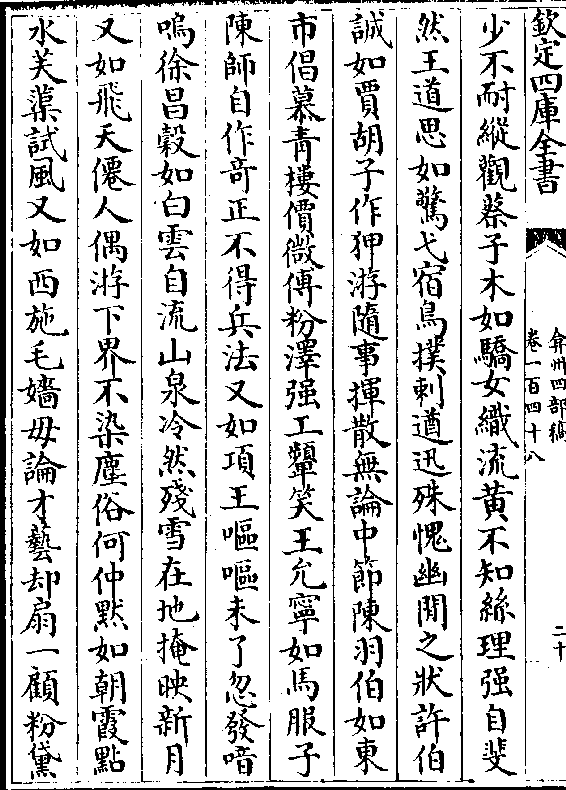 欽定四庫全書
弇州四部稿
卷一百四十八
二十
少不耐縱觀蔡子木如驕女織流黃不知絲理强自斐
然王道思如驚弋宿鳥撲刺遒迅殊愧幽閒之狀許伯
誠如賈胡子作狎游隨事揮散無論中節陳羽伯如東
市倡慕青樓價微傅粉澤强工顰笑王允寧如馬服子
陳師自作奇正不得兵法又如項王嘔嘔未了忽發喑
嗚徐昌穀如白雲自流山泉冷然殘雪在地掩映新月
又如飛天僊人偶游下界不染塵俗何仲默如朝霞點
水芙蕖試風又如西施毛嬙毋論才藝却扇一顧粉黛